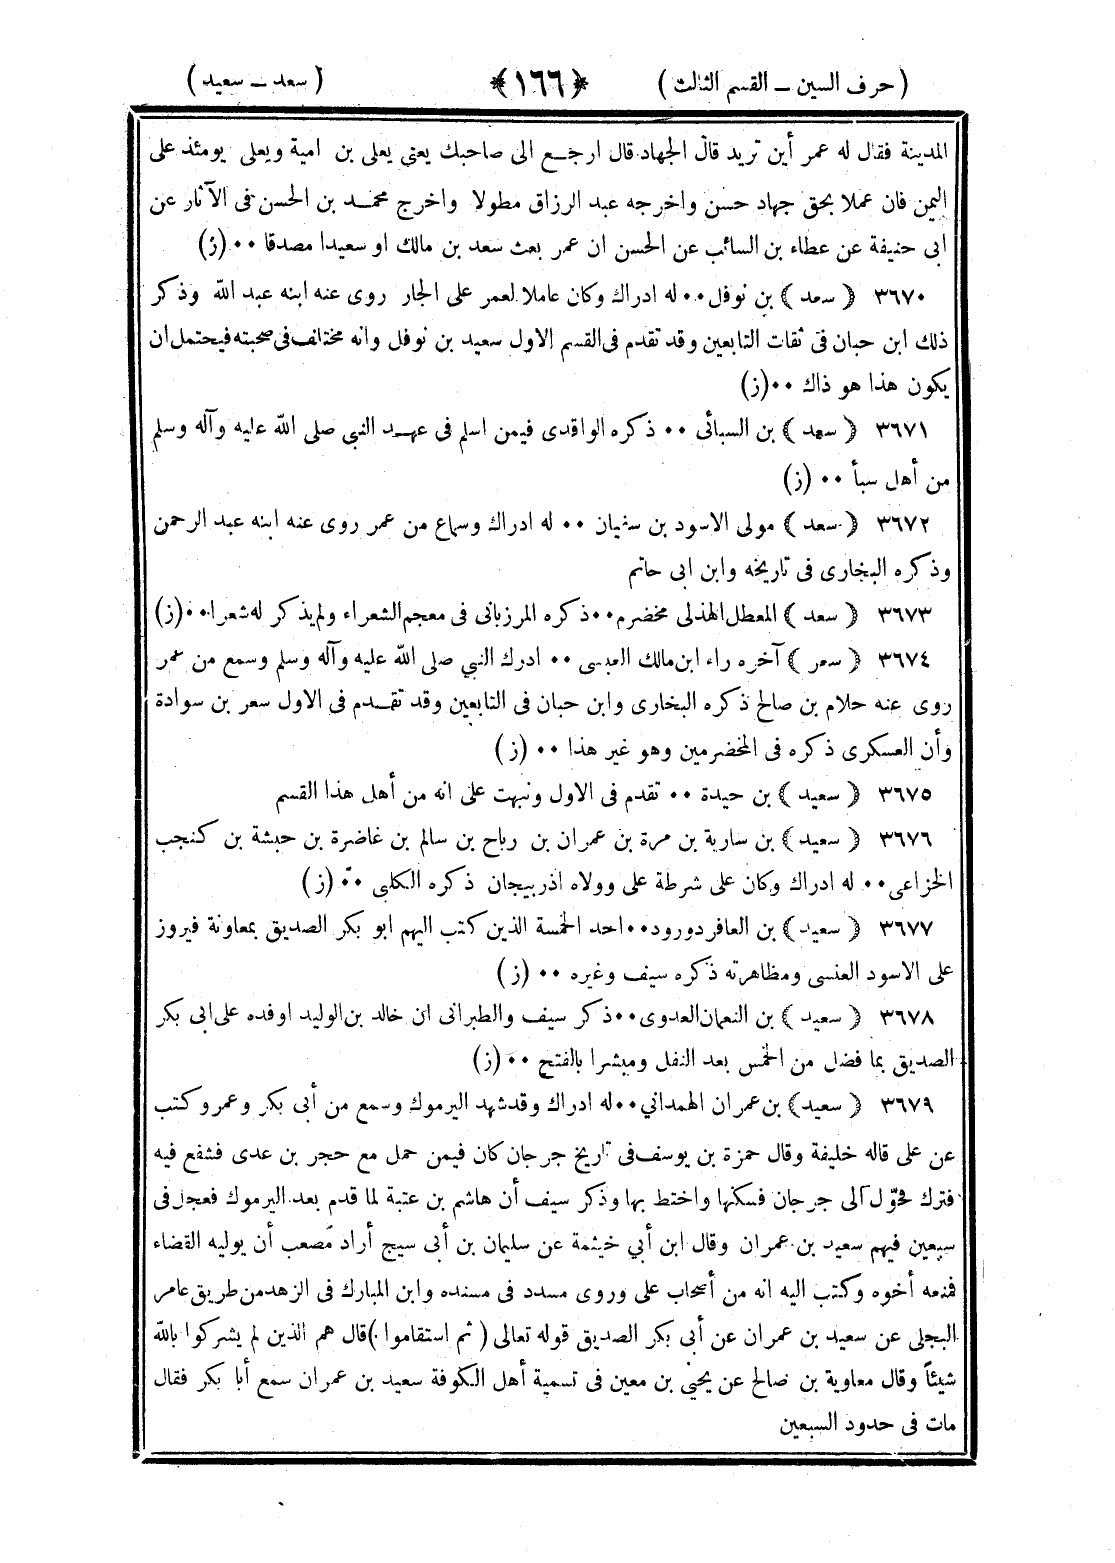 ( حرف السين ــ القسم الثالث ) ﴿ ١٦٦ ﴾ ( سعد ــ سعيد )
المدينة فقال له عمر أين تريد قال الجهاد قال ارجع الى صاحبك يعني يعلى بن امية ويعلى يومئذ على
اليمن فان عملا بحق جهاد حسن واخرجه عبد الرزاق مطولا واخرج محمد بن الحسن فى الآثار عن
ابى حنيفة عن عطاء بن السائب عن الحسن ان عمر بعث سعد بن مالك او سعيدا مصدقا ٠٠ (ز)
٣٦٧٠ ﴿ سعد ﴾ بن نوفل ٠٠ له ادراك وكان عاملا لعمر على الجار روى عنه ابنه عبد الله وذكر
ذلك ابن حبان فى ثقات التابعين وقد تقدم فى القسم الاول سعيد بن نوفل وانه مختلف فى صحبته فيحتمل ان
يكون هذا هو ذاك ٠٠ (ز)
٣٦٧١ ﴿ سعد ﴾ بن السبائى ٠٠ ذكره الواقدى فيمن اسلم فى عهد النبي صلى الله عليه وآله وسلم
من أهل سبأ ٠٠ (ز)
٣٦٧٢ ﴿ سعد ﴾ مولى الاسود بن سفيان ٠٠ له ادراك وسماع من عمر روى عنه ابنه عبد الرحمن
وذكره البخارى فى تاريخه وابن ابى حاتم
٣٦٧٣ ﴿ سعد ﴾ المعطل الهذلى مخضرم ٠٠ ذكره المرزبانى فى معجم الشعراء ولم يذكر له شعرا ٠٠ (ز)
٣٦٧٤ ﴿ سعر ﴾ آخره راء ابن مالك العبسى ٠٠ ادرك النبي صلى الله عليه وآله وسلم وسمع من عمر
روى عنه حلام بن صالح ذكره البخارى وابن حبان فى التابعين وقد تقدم فى الاول سعر بن سوادة
وأن العسكرى ذكره فى المخضرمين وهو غير هذا ٠٠ (ز)
٣٦٧٥ ﴿ سعيد ﴾ بن حيدة ٠٠ تقدم فى الاول ونبهت على انه من أهل هذا القسم
٣٦٧٦ ﴿ سعيد ﴾ بن سارية بن مرة بن عمران بن رباح بن سالم بن غاضرة بن حبشة بن كنجب
الخزاعى ٠٠ له ادراك وكان على شرطة على وولاه اذربيجان ذكره الكلبى ٠٠ (ز)
٣٦٧٧ ﴿ سعيد ﴾ بن العافردورود ٠٠ احد الخمسة الذين كتب اليهم ابو بكر الصديق بمعاونة فيروز
على الاسود العنسى ومظاهرته ذكره سيف وغيره ٠٠ (ز)
٣٦٧٨ ﴿ سعيد ﴾ بن النعمان العدوى ٠٠ ذكر سيف والطبرانى ان خالد بن الوليد اوفده على ابى بكر
الصديق بما فضل من الخمس بعد النفل ومبشرا بالفتح ٠٠ (ز)
٣٦٧٩ ﴿ سعيد ﴾ بن عمران الهمداني ٠٠ له ادراك وقد شهد اليرموك وسمع من أبى بكر وعمر وكتب
عن على قاله خليفة وقال حمزة بن يوسف فى تاريخ جرجان كان فيمن حمل مع حجر بن عدى فشفع فيه
فترك فحوّل الى جرجان فسكنها واختط بها وذكر سيف أن هاشم بن عتبة لما قدم بعد اليرموك فعجل فى
سبعين فيهم سعيد بن عمران وقال ابن أبي خيثمة عن سليمان بن أبى سيج أراد مصعب أن يوليه القضاء
فمنعه أخوه وكتب اليه انه من أصحاب على وروى مسدد فى مسنده وابن المبارك فى الزهد من طريق عامر
البجلى عن سعيد بن عمران عن أبى بكر الصديق قوله تعالى ( ثم استقاموا ) قال هم الذين لم يشركوا بالله
شيئاً وقال معاوية بن صالح عن يحيى بن معين فى تسمية أهل الكوفة سعيد بن عمران سمع أبا بكر فقال
مات فى حدود السبعين